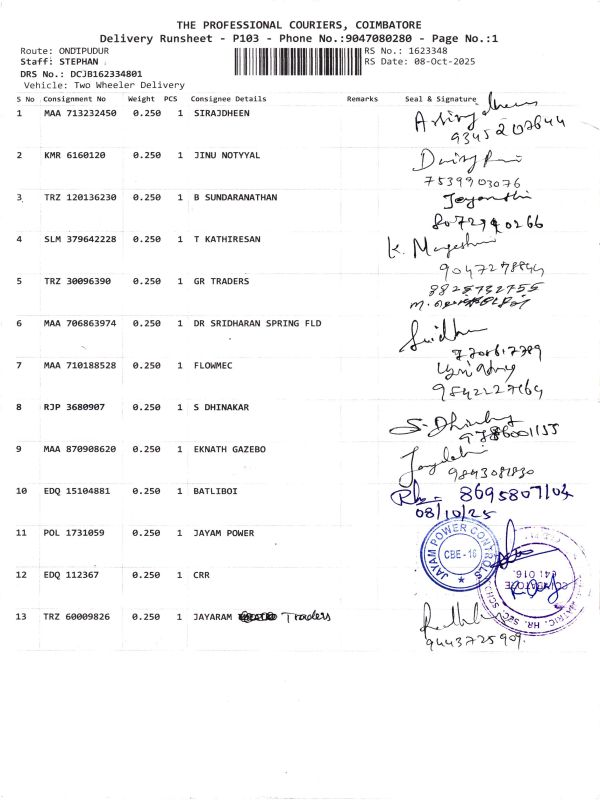 THE PROFESSIONAL COURIERS, COIMBATORE
Delivery Runsheet - P103 - Phone No.:9047080280 - Page No.:1
Route: ONDIPUDUR
RS No.: 1623348
Staff: STEPHAN
RS Date: 08-Oct-2025
DRS No.: DCJB162334801
Vehicle: Two Wheeler Delivery
S No Consignment No Weight PCS Consignee Details Remarks Seal & Signature
1 MAA 713232450 0.250 1 SIRAJDHEEN
2 KMR 6160120 0.250 1 JINU NOTYYAL
7539903076
3 TRZ 120136230 0.250 1 B SUNDARANATHAN
Jayanthi
4 SLM 379642228 0.250 1 T KATHIRESAN
5 TRZ 30096390 0.250 1 GR TRADERS
8825732755
6 MAA 706863974 0.250 1 DR SRIDHARAN SPRING FLD
7 MAA 710188528 0.250 1 FLOWMEC
8 RJP 3680907 0.250 1 S DHINAKAR
9 MAA 870908620 0.250 1 EKNATH GAZEBO
10 EDQ 15104881 0.250 1 BATLIBOI
8695807104
08/10/25
11 POL 1731059 0.250 1 JAYAM POWER
JAYAM POWER CONTROLS
CBE-16
12 EDQ 112367 0.250 1 CRR
COIMBATORE
641 016.
MATRIC. HR. SEC. SCH
13 TRZ 60009826 0.250 1 JAYARAM Traders
9443725909